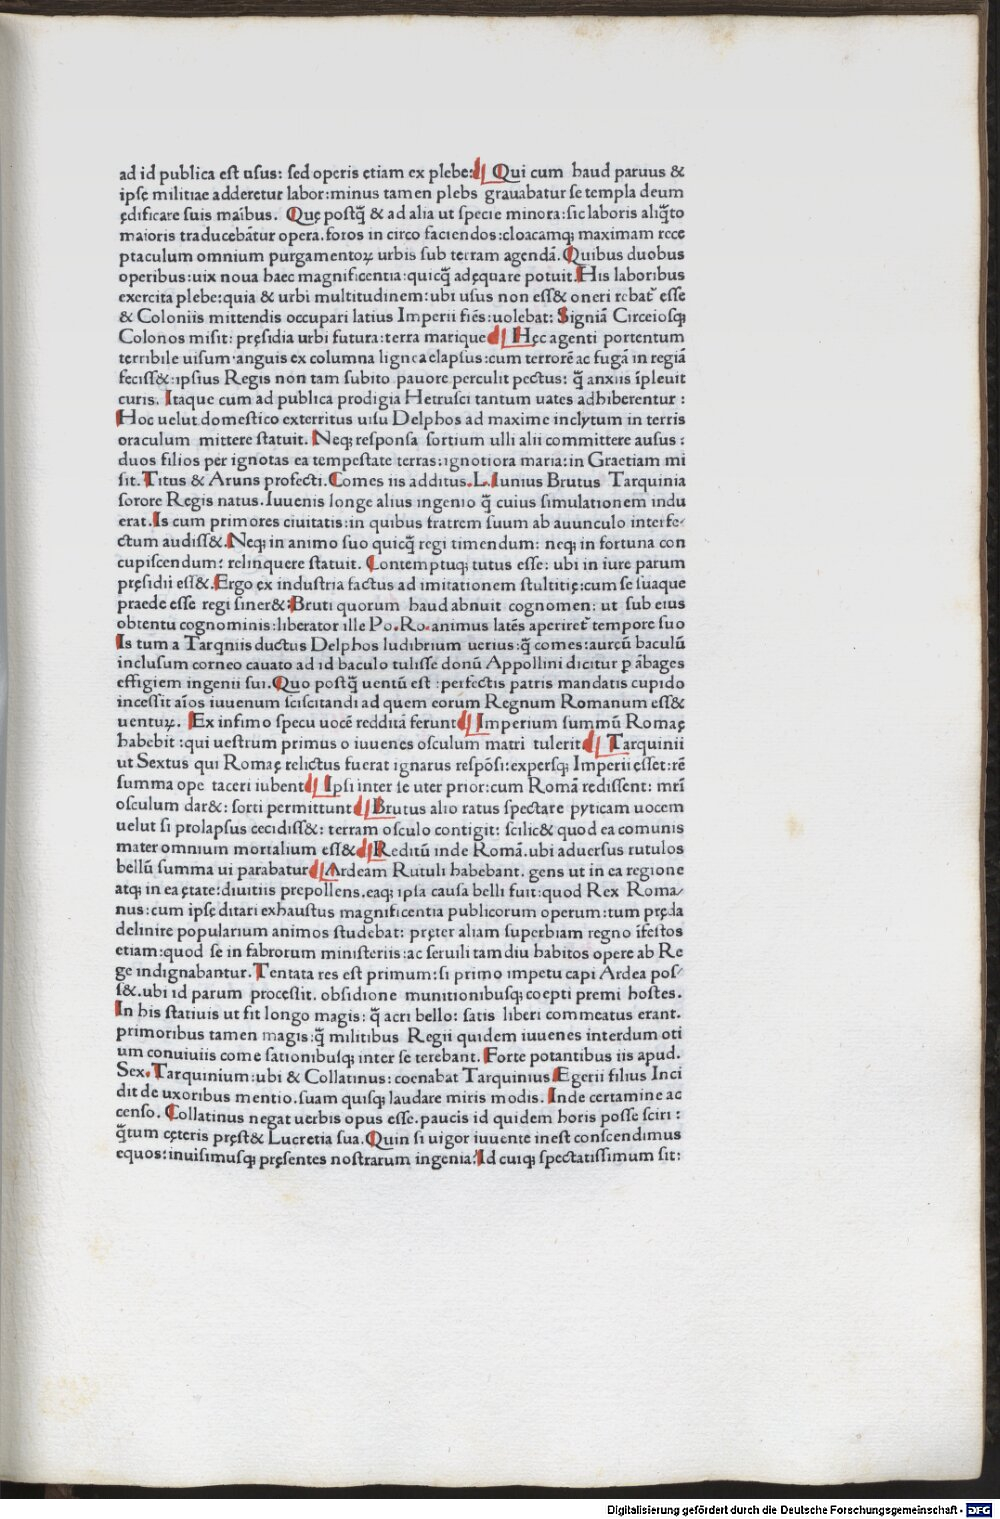 ad id publica est usus: sed operis etiam ex plebe: Qui cum haud paruus &
ipsę militiae adderetur labor: minus tamen plebs grauabatur se templa deum
ędificare suis maībus. Quę postq̄ & ad alia ut specie minora: sic laboris aliq̄to
maioris traducebātur opera. foros in circo faciendos: cloacamq; maximam rece
ptaculum omnium purgamentoꝝ urbis sub terram agendā. Quibus duobus
operibus: uix noua haec magnificentia: quicq̄ adęquare potuit. His laboribus
exercita plebe: quia & urbi multitudinem: ubi usus non ess& oneri rebat᷑ esse
& Coloniis mittendis occupari latius Imperii fiēs: uolebat: Signiā Circeiosq;
Colonos misit: pręsidia urbi futura: terra marique Hęc agenti portentum
terribile uisum: anguis ex columna lignea elapsus: cum terrorē ac fugā in regiā
feciss&: ipsius Regis non tam subito pauore perculit pectus: q̄ anxiis īpleuit
curis. Itaque cum ad publica prodigia Hetrusci tantum uates adhiberentur:
Hoc uelut domestico exterritus uisu Delphos ad maxime inclytum in terris
oraculum mittere statuit. Neq; responsa sortium ulli alii committere ausus:
duos filios per ignotas ea tempestate terras: ignotiora maria: in Graetiam mi
sit. Titus & Aruns profecti. Comes iis additus. L. Iunius Brutus Tarquinia
sorore Regis natus. Iuuenis longe alius ingenio q̄ cuius simulationem indu
erat. Is cum primores ciuitatis: in quibus fratrem suum ab auunculo interfe-
ctum audiss&. Neq; in animo suo quicq̄ regi timendum: neq; in fortuna con
cupiscendum: relinquere statuit. Contemptuq; tutus esse: ubi in iure parum
pręsidii ess&. Ergo ex industria factus ad imitationem stultitię: cum se suaque
praede esse regi siner&: Bruti quorum haud abnuit cognomen: ut sub eius
obtentu cognominis: liberator ille Po. Ro. animus latēs aperiret᷑ tempore suo
Is tum a Tarqniis ductus Delphos ludibrium uerius: q̄ comes: aureū baculū
inclusum corneo cauato ad id baculo tulisse donū Appollini dicitur ꝑ ābages
effigiem ingenii sui. Quo postq̄ uentū est: perfectis patris mandatis cupido
incessit aīos iuuenum sciscitandi ad quem eorum Regnum Romanum ess&
uentuꝝ. Ex infimo specu uocē redditā ferunt Imperium summū Romaę
habebit: qui uestrum primus o iuuenes osculum matri tulerit Tarquinii
ut Sextus qui Romaę relictus fuerat ignarus respōsi: expersq; Imperii esset: rē
summa ope taceri iubent Ipsi inter se uter prior: cum Romā redissent: mrī
osculum dar&: sorti permittunt Brutus alio ratus spectare pyticam uocem
uelut si prolapsus cecidiss&: terram osculo contigit: scilic& quod ea comunis
mater omnium mortalium ess& Reditū inde Romā. ubi aduersus rutulos
bellū summa ui parabatur Ardeam Rutuli habebant. gens ut in ea regione
atq; in ea ętate: diuitiis prepollens. eaq; ipsa causa belli fuit: quod Rex Roma-
nus: cum ipsę ditari exhaustus magnificentia publicorum operum: tum pręda
delinire popularium animos studebat: pręter aliam superbiam regno īfestos
etiam: quod se in fabrorum ministeriis: ac seruili tam diu habitos opere ab Re
ge indignabantur. Tentata res est primum: si primo impetu capi Ardea pos-
s&. ubi id parum processit. obsidione munitionibusq; coepti premi hostes.
In his statiuis ut fit longo magis: q̄ acri bello: satis liberi commeatus erant.
primoribus tamen magis: q̄ militibus Regii quidem iuuenes interdum oti
um conuiuiis come sationibusq; inter se terebant. Forte potantibus iis apud.
Sex. Tarquinium: ubi & Collatinus: coenabat Tarquinius Egerii filius Inci
dit de uxoribus mentio. suam quisq; laudare miris modis. Inde certamine ac
censo. Collatinus negat uerbis opus esse. paucis id quidem horis posse sciri:
q̄tum cęteris pręst& Lucretia sua. Quin si uigor iuuente inest conscendimus
equos: inuisimusq; pręsentes nostrarum ingenia: Id cuiq; spectatissimum sit:
Digitalisierung gefördert durch die Deutsche Forschungsgemeinschaft - DFG